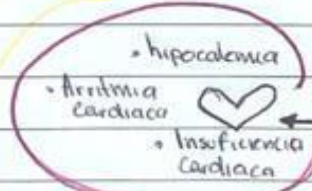 • hipocalemia
• Arritmia
cardiaca
• Insuficiencia
cardiaca